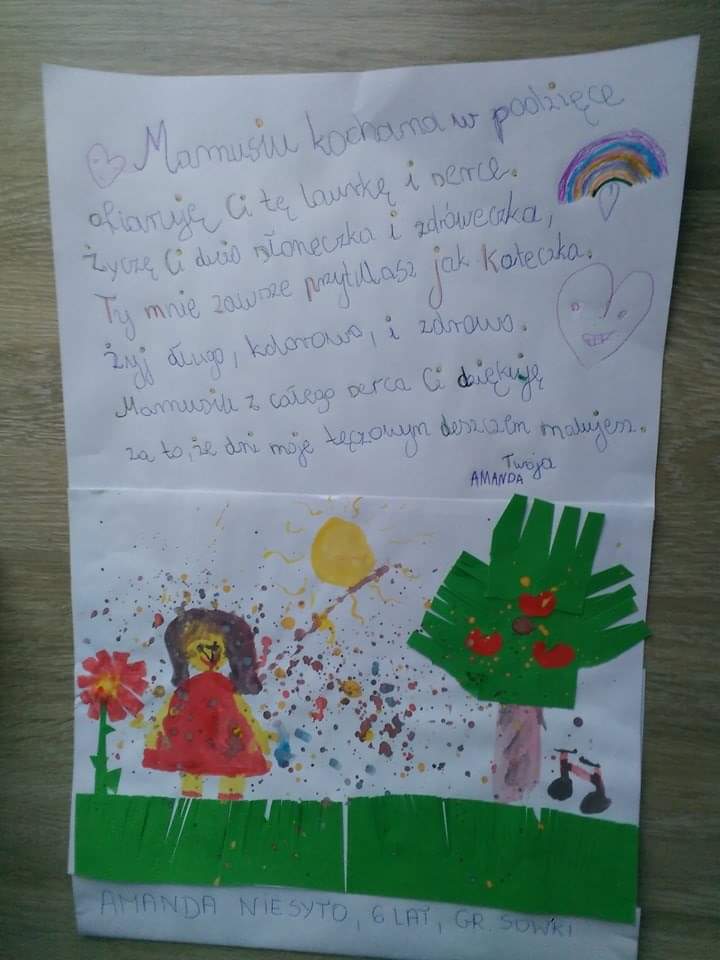 Mamusiu kochana w podzięce
ofiaruję Ci tę laurkę i serce.
Życzę Ci dużo słoneczka i zdróweczka,
Ty mnie zawsze przytulasz jak koteczka.
Żyj długo, kolorowo, i zdrowo.
Mamusiu z całego serca Ci dziękuję
za to, że dni moje tęczowym deszczem malujesz.
Twoja
AMANDA
AMANDA NIESYTO, 6 LAT, GR. SÓWKI